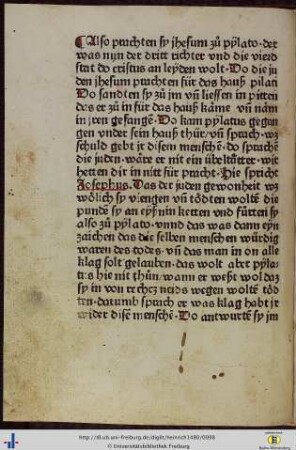 Also prachten sy jhesum zů pÿlato · der
was nun der dritt richter vnd die vierd
stat do cristus an leyden wolt · Do die ju
den jhesum prachten für das hauß pilati
Do sandten sy zů jm vñ liessen in pitten
das er zů in für das hauß käme vñ näm
in jren gefangē · Do kam pylatus gegan
gen vnder sein hauß thür / vñ sprach · wz
schuld gebt jr disem menschē · do sprachē
die juden · wäre er nit ein übeltätter · wir
hetten dir in nitt für pracht · Hie spricht
Josephus · Das der juden gewonheit wz
wölich sy viengen vñ tödten woltē die
pundē sy an eyßnin ketten vnd fürten sy
also zů pÿlato · vnnd das was dann eyn
zaichen das die selben menschen würdig
waren des todes · vñ das man in on alle
klag solt gelauben · das wolt aber pÿla
tus hie nit thůn / wann er weßt wol daz
sy in von rechcz neids wegen woltē töd
ten · darumb sprach er was klag habt jr
wider disē menschē · Do antwurtē sy jm
http://dl.ub.uni-freiburg.de/diglit/heinrich1480/0098
© Universitätsbibliothek Freiburg